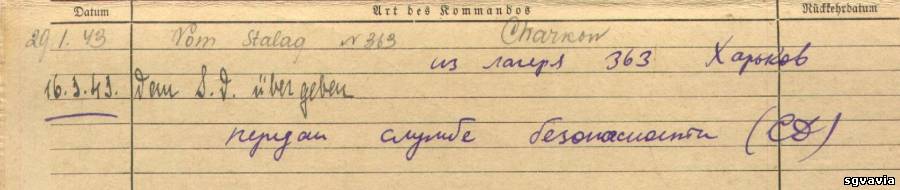 Datum Art des Kommandos Rückkehrdatum
29.1.43 Vom Stalag № 363 Charkow
из лагеря 363 Харьков
16.3.43. dem S.D. übergeben
передан службе безопасности (СД)
sgvavia